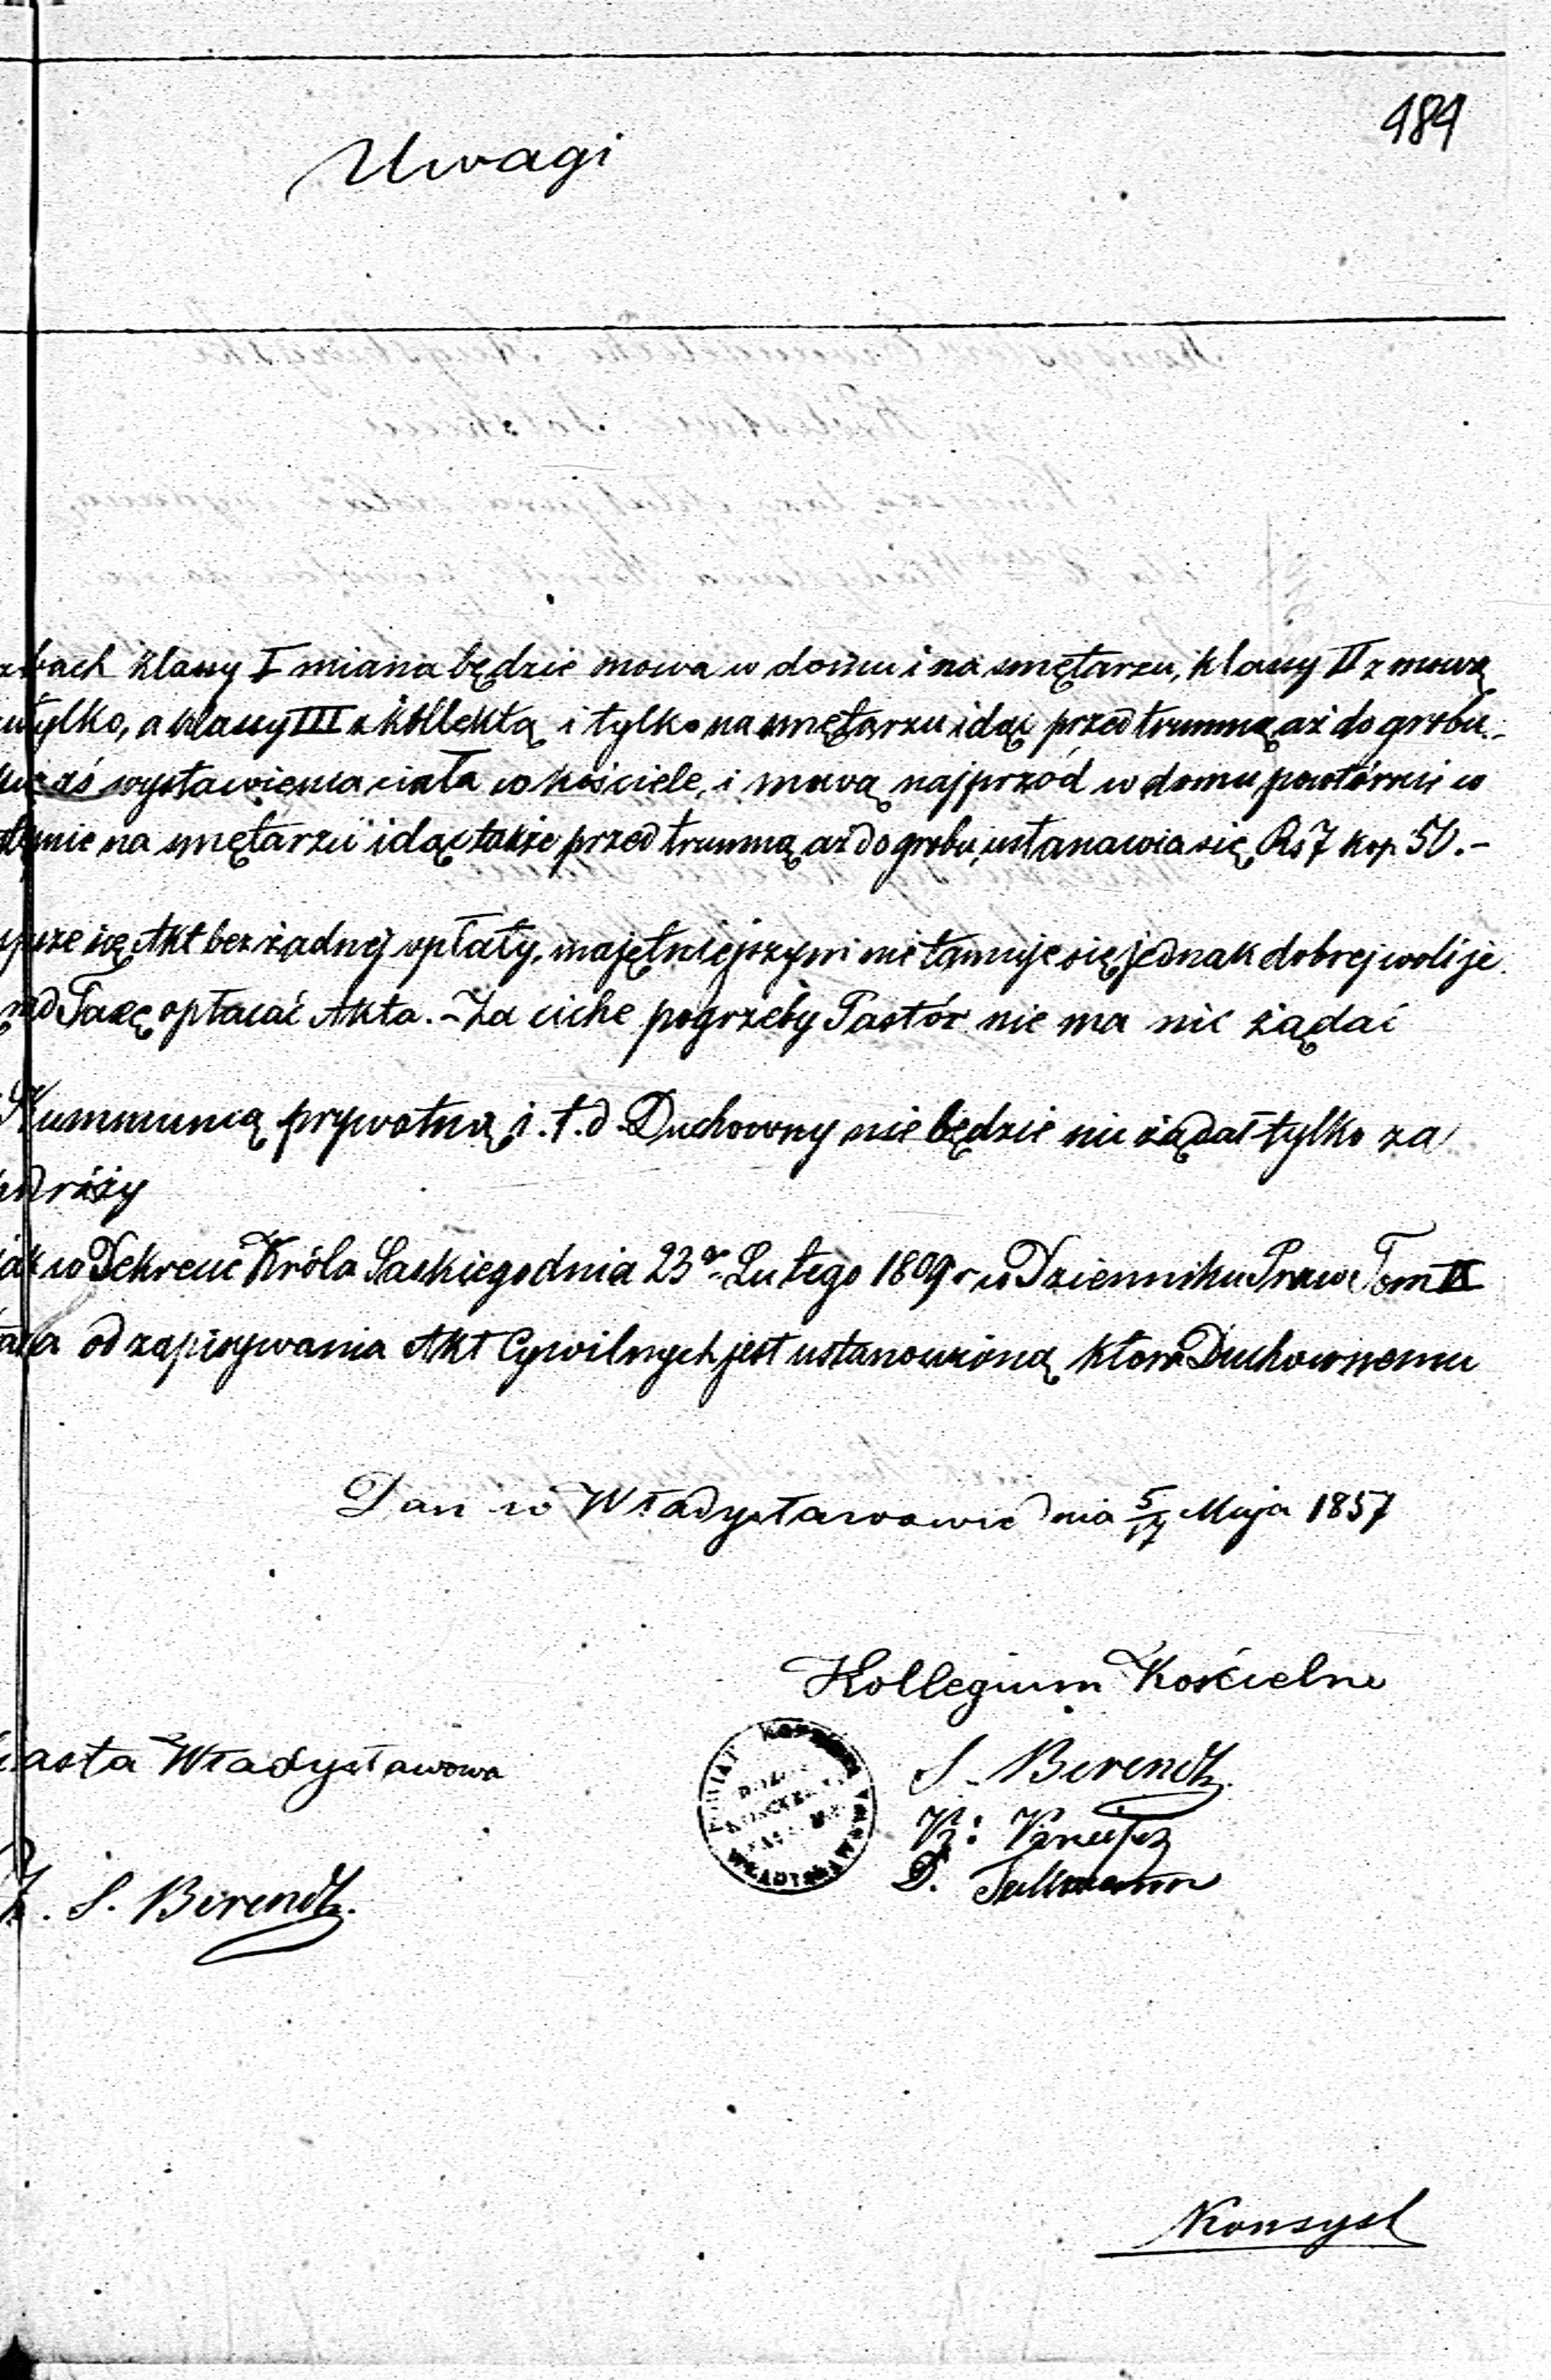 484
Uwagi
bach klassy I miana będzie mowa w domu i na smętarzu, klassy II z mową
tylko, a klassy III z kollektą i tylko na smętarzu idąc przed trumną aż do grobu.
wystawienia ciała w kościele, i mową najprzód w domu powtórnie w
na smętarzu idąc także przed trumną aż do grobu, ustanawia się Rs 7 kop. 50.-
się Akt bez żadnej opłaty, majętniejszym nie tamuje się jednak dobrej woli je
nad Taxę opłacać Akta. - Za ciche pogrzeby Pastór nie ma nic żądać
Kummunią prywatną i.t.d. Duchowny nie będzie nic żądał tylko za
podróży
jak w Dekrecie Króla Saskiego dnia 23go Lutego 1809 r w Dzienniku Praw Tom II
od zapisywania Akt Cywilnych jest ustanowioną która Duchownemu
Dan w Władysławowie dnia 5/17 Maja 1857
Kollegium Kościelne
iasta Władysławowa
S. Berendt
K: Knufez
D. Tullmann
S. Berendt.
Konsyst